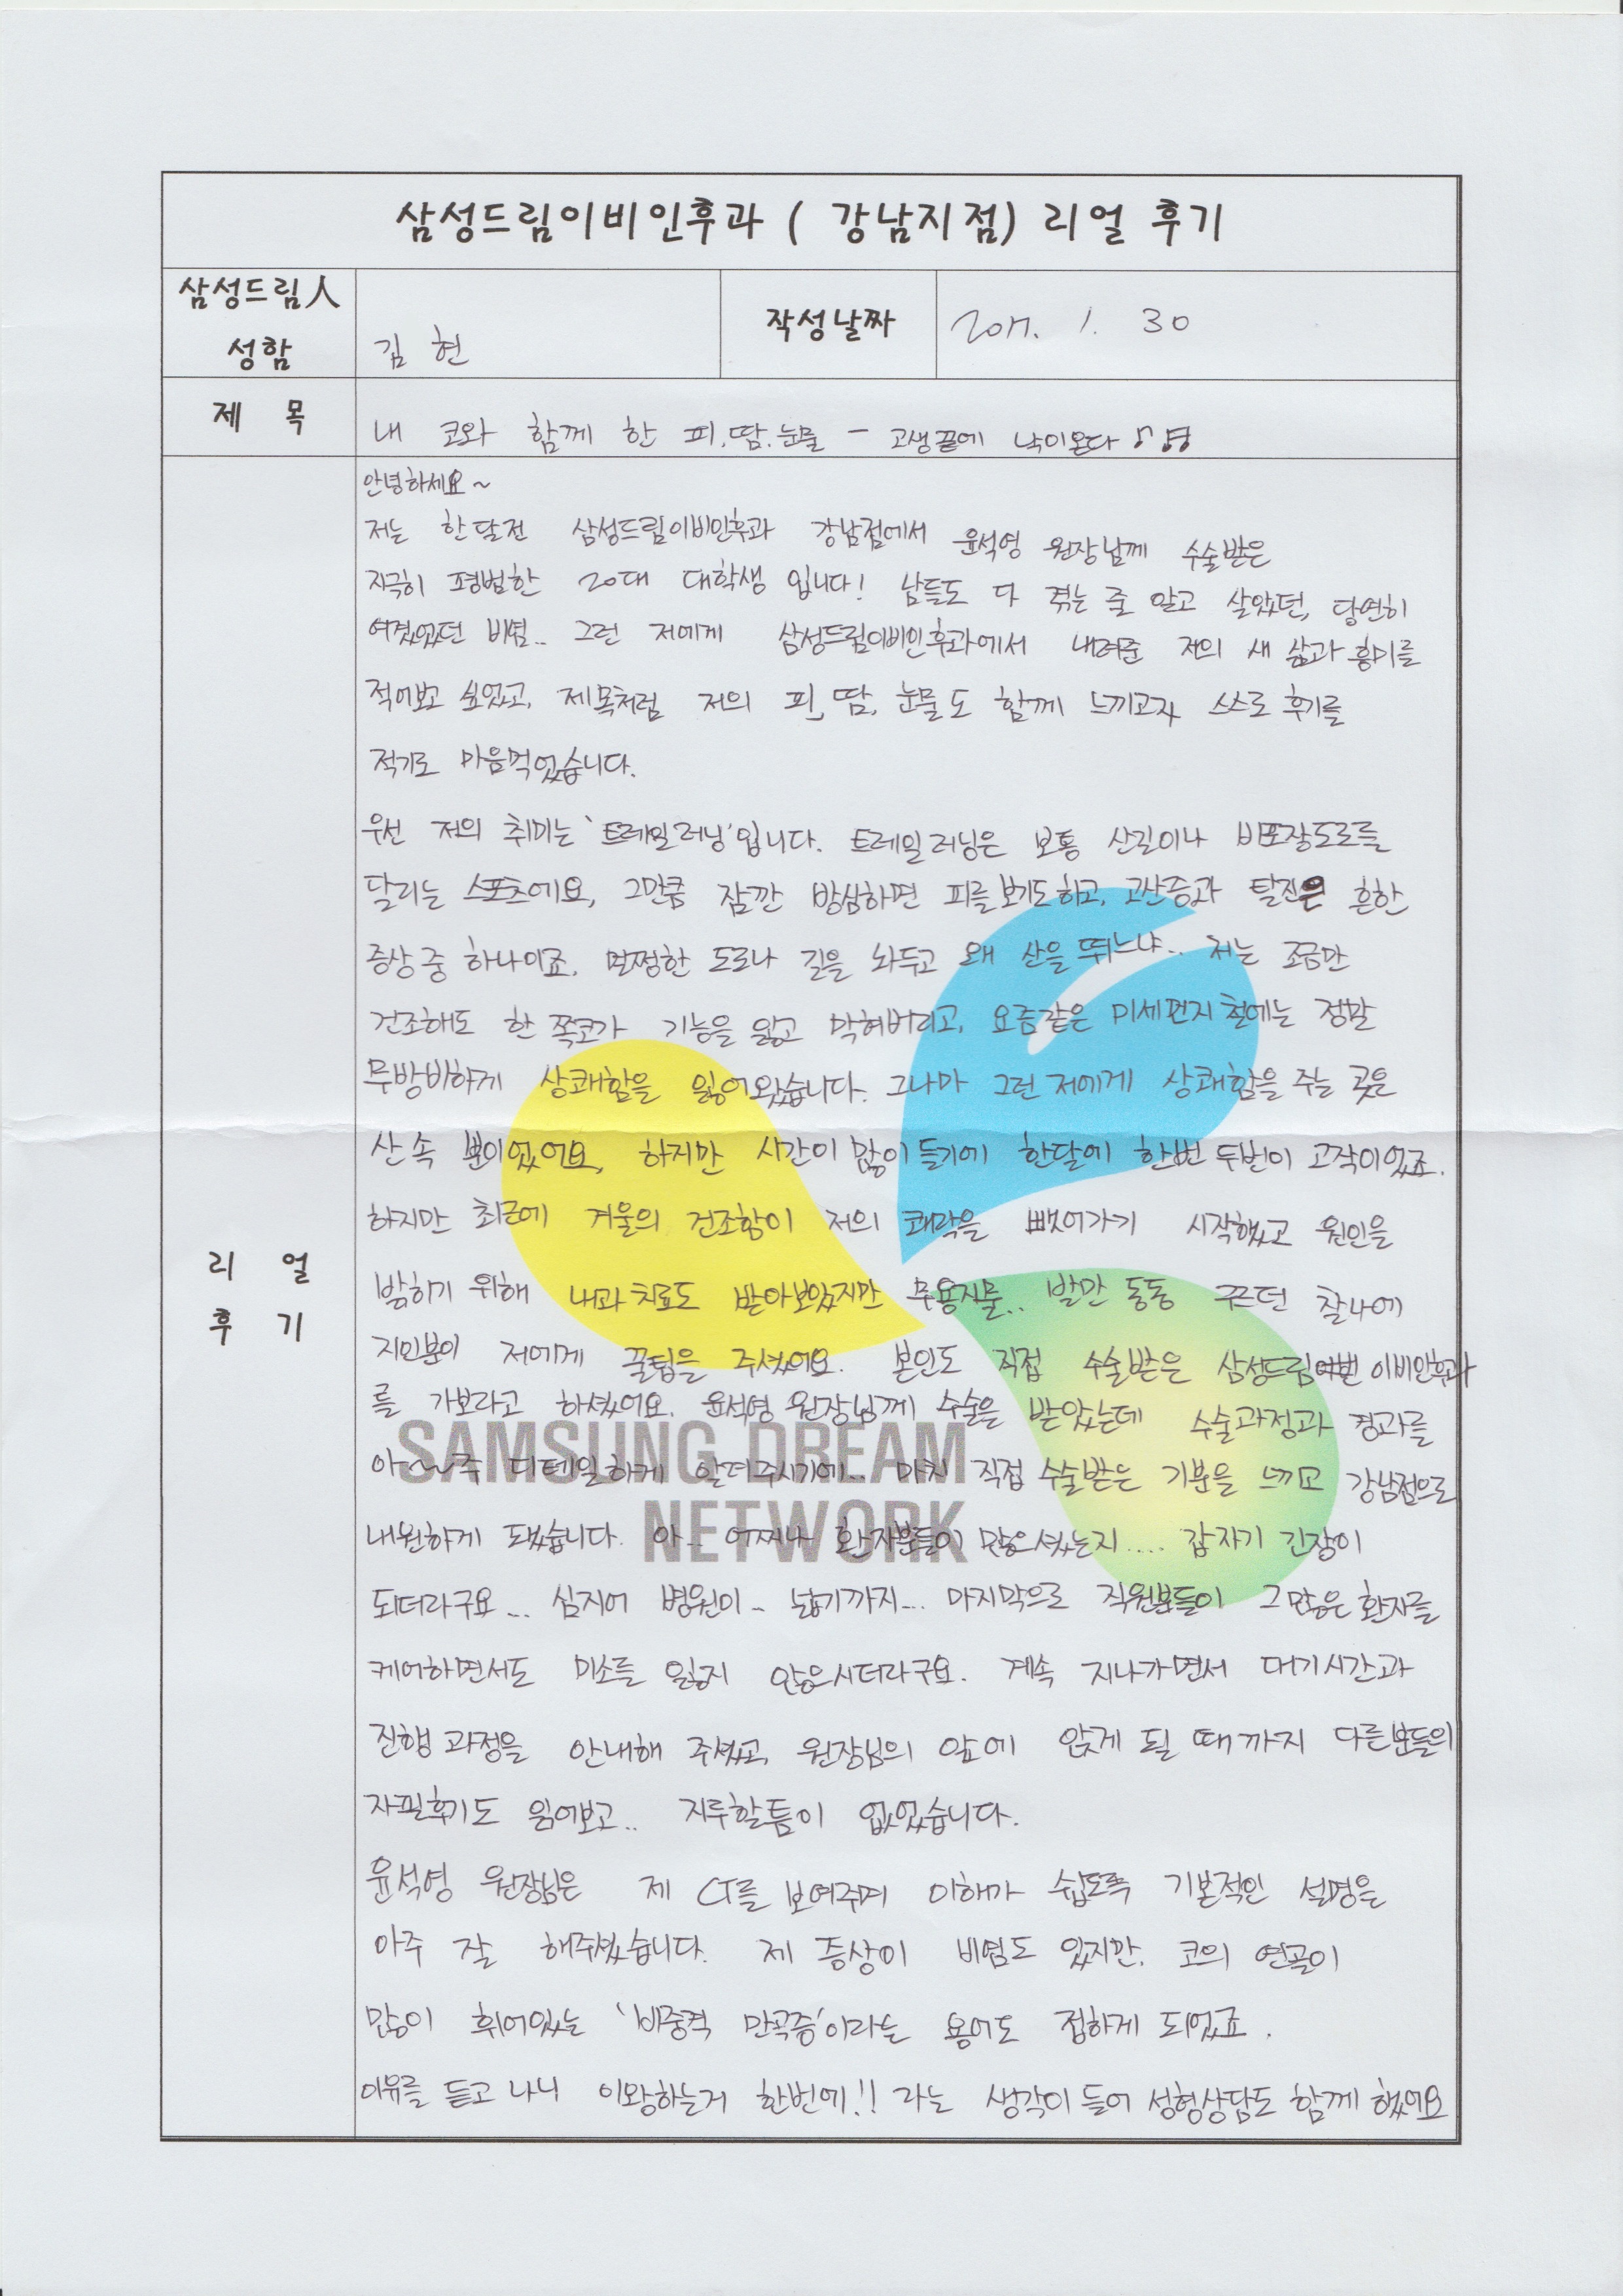 삼성드림이비인후과 ( 강남지점) 리얼 후기
삼성드림人
성함
김 현
작성날짜
2017. 1. 30
제 목
내 코와 함께 한 피.땀.눈물 - 고생끝에 낙이온다 ♪♬
리 얼
후 기
안녕하세요~
저는 한달전 삼성드림이비인후과 강남점에서 윤석영 원장님께 수술받은
지극히 평범한 20대 대학생 입니다! 남들도 다 겪는 줄 알고 살았던, 당연히
여겼었던 비염.. 그런 저에게 삼성드림이비인후과에서 내려준 저의 새 삶과 흥미를
적어보고 싶었고, 제목처럼 저의 피, 땀, 눈물도 함께 느끼고자 스스로 후기를
적기로 마음먹었습니다.
우선 저의 취미는 '트레일러닝'입니다. 트레일러닝은 보통 산길이나 비포장도로를
달리는 스포츠에요, 그만큼 잠깐 방심하면 피를보기도하고, 고산증과 탈진은 흔한
증상중 하나이죠. 멀쩡한 도로나 길을 놔두고 왜 산을 뛰느냐.. 저는 조금만
건조해도 한 쪽코가 기능을 잃고 막혀버리고, 요즘같은 미세먼지철에는 정말
무방비하게 상쾌함을 잃어왔습니다. 그나마 그런 저에게 상쾌함을 주는 곳은
산 속 뿐이었어요, 하지만 시간이 많이 들기에 한달에 한번 두번이 고작이었죠.
하지만 최근에 겨울의 건조함이 저의 쾌락을 뺏어가기 시작했고 원인을
밝히기 위해 내과치료도 받아보았지만 무용지물.. 발만 동동 구르던 찰나에
지인분이 저에게 꿀팁을 주셨어요. 본인도 직접 수술받은 삼성드림 이비인후과
를 가보라고 하셨어요. 윤석영 원장님께 수술을 받았는데 수술과정과 경과를
아~~주 디테일하게 알려주시기에.. 마치 직접 수술받은 기분을 느끼고 강남점으로
내원하게 됐습니다. 아.. 어찌나 환자분들이 많으셨는지.... 갑자기 긴장이
되더라구요... 심지어 병원이.. 넓기까지... 마지막으로 직원분들이 그 많은 환자를
케어하면서도 미소를 잃지 않으시더라구요. 계속 지나가면서 대기시간과
진행 과정을 안내해 주셨고, 원장님의 앞에 앉게 될 때까지 다른분들의
자필후기도 읽어보고.. 지루할틈이 없었습니다.
윤석영 원장님은 제 CT를 보여주며 이해가 쉽도록 기본적인 설명을
아주 잘 해주셨습니다. 제 증상이 비염도 있지만, 코의 연골이
많이 휘어있는 '비중격 만곡증'이라는 용어도 접하게 되었죠.
이유를 듣고 나니 이왕하는거 한번에!! 라는 생각이 들어 성형상담도 함께 했어요
SAMSUNG DREAM
NETWORK